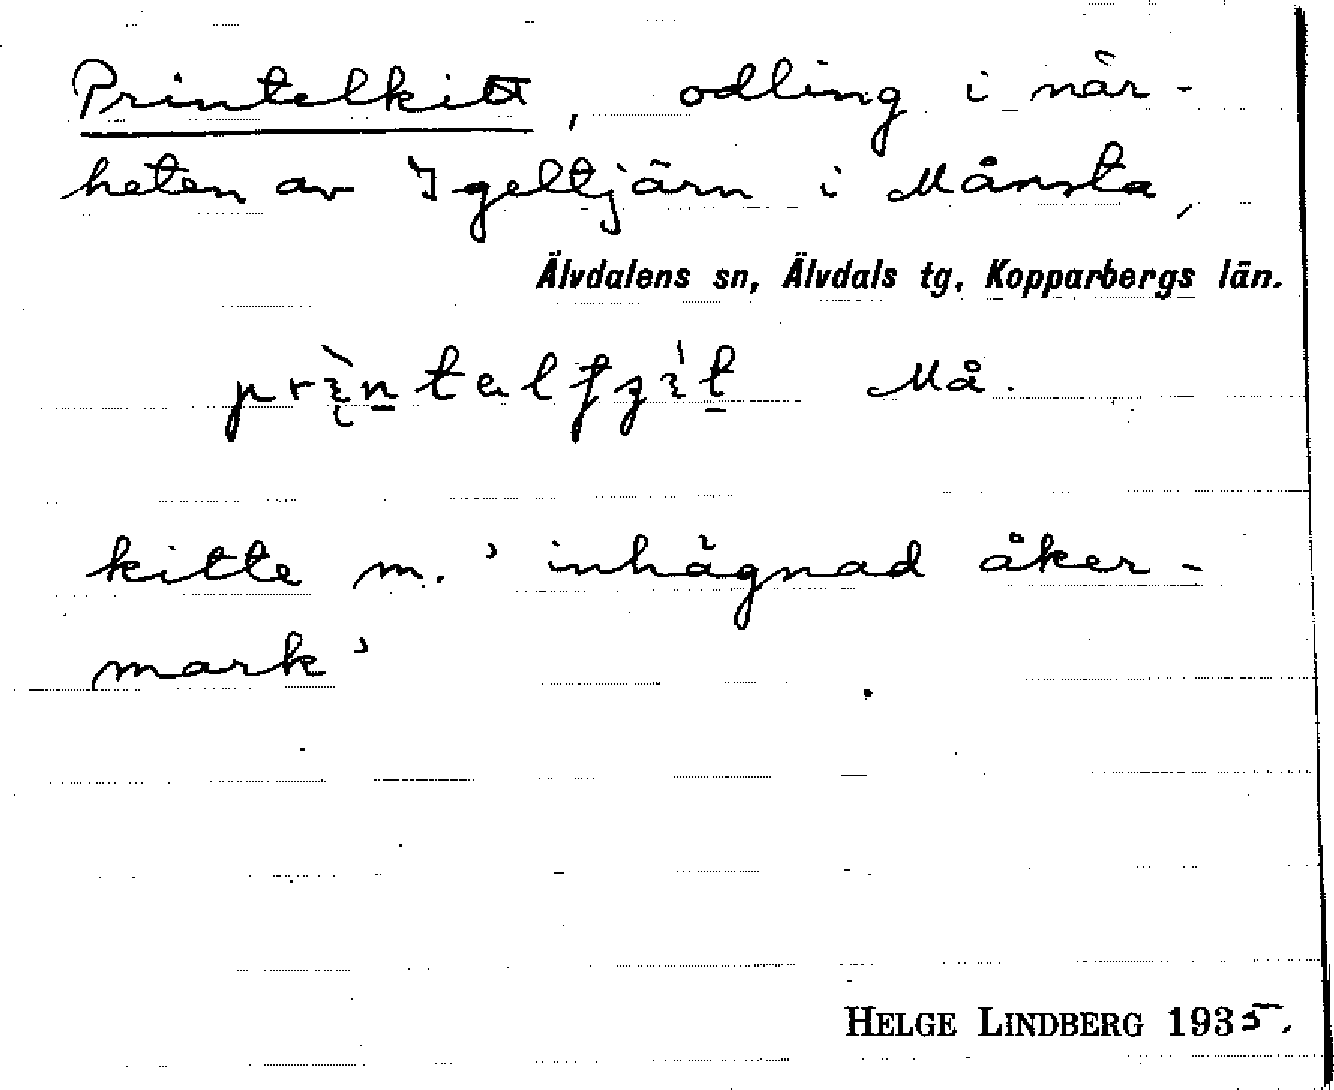 Printelkitt, odling i när-
heten av Igeltjärn i Månsta,
Älvdalens sn, Älvdals tg, Kopparbergs län.
Må.
kitte m. 'inhägnad åker-
mark'
HELGE LINDBERG 1935.